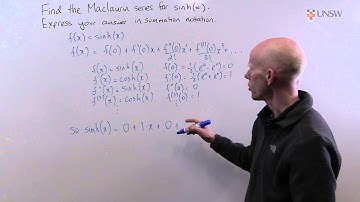 Find the Maclaurin series for sinh(x).
UNSW
Express your answer in summation notation.
f(x) = sinh(x)
f(x) = f(0) + f'(0)x + f''(0)x²/2! + f'''(0)x³/3! + ...
f(x) = sinh(x) f(0) = ½(e⁰ - e⁻⁰) = 0
f'(x) = cosh(x) f'(0) = ½(e⁰ + e⁻⁰) = 1
f''(x) = sinh(x) f''(0) = 0
f'''(x) = cosh(x) f'''(0) = 1
So sinh(x) = 0 + 1·x + 0 +